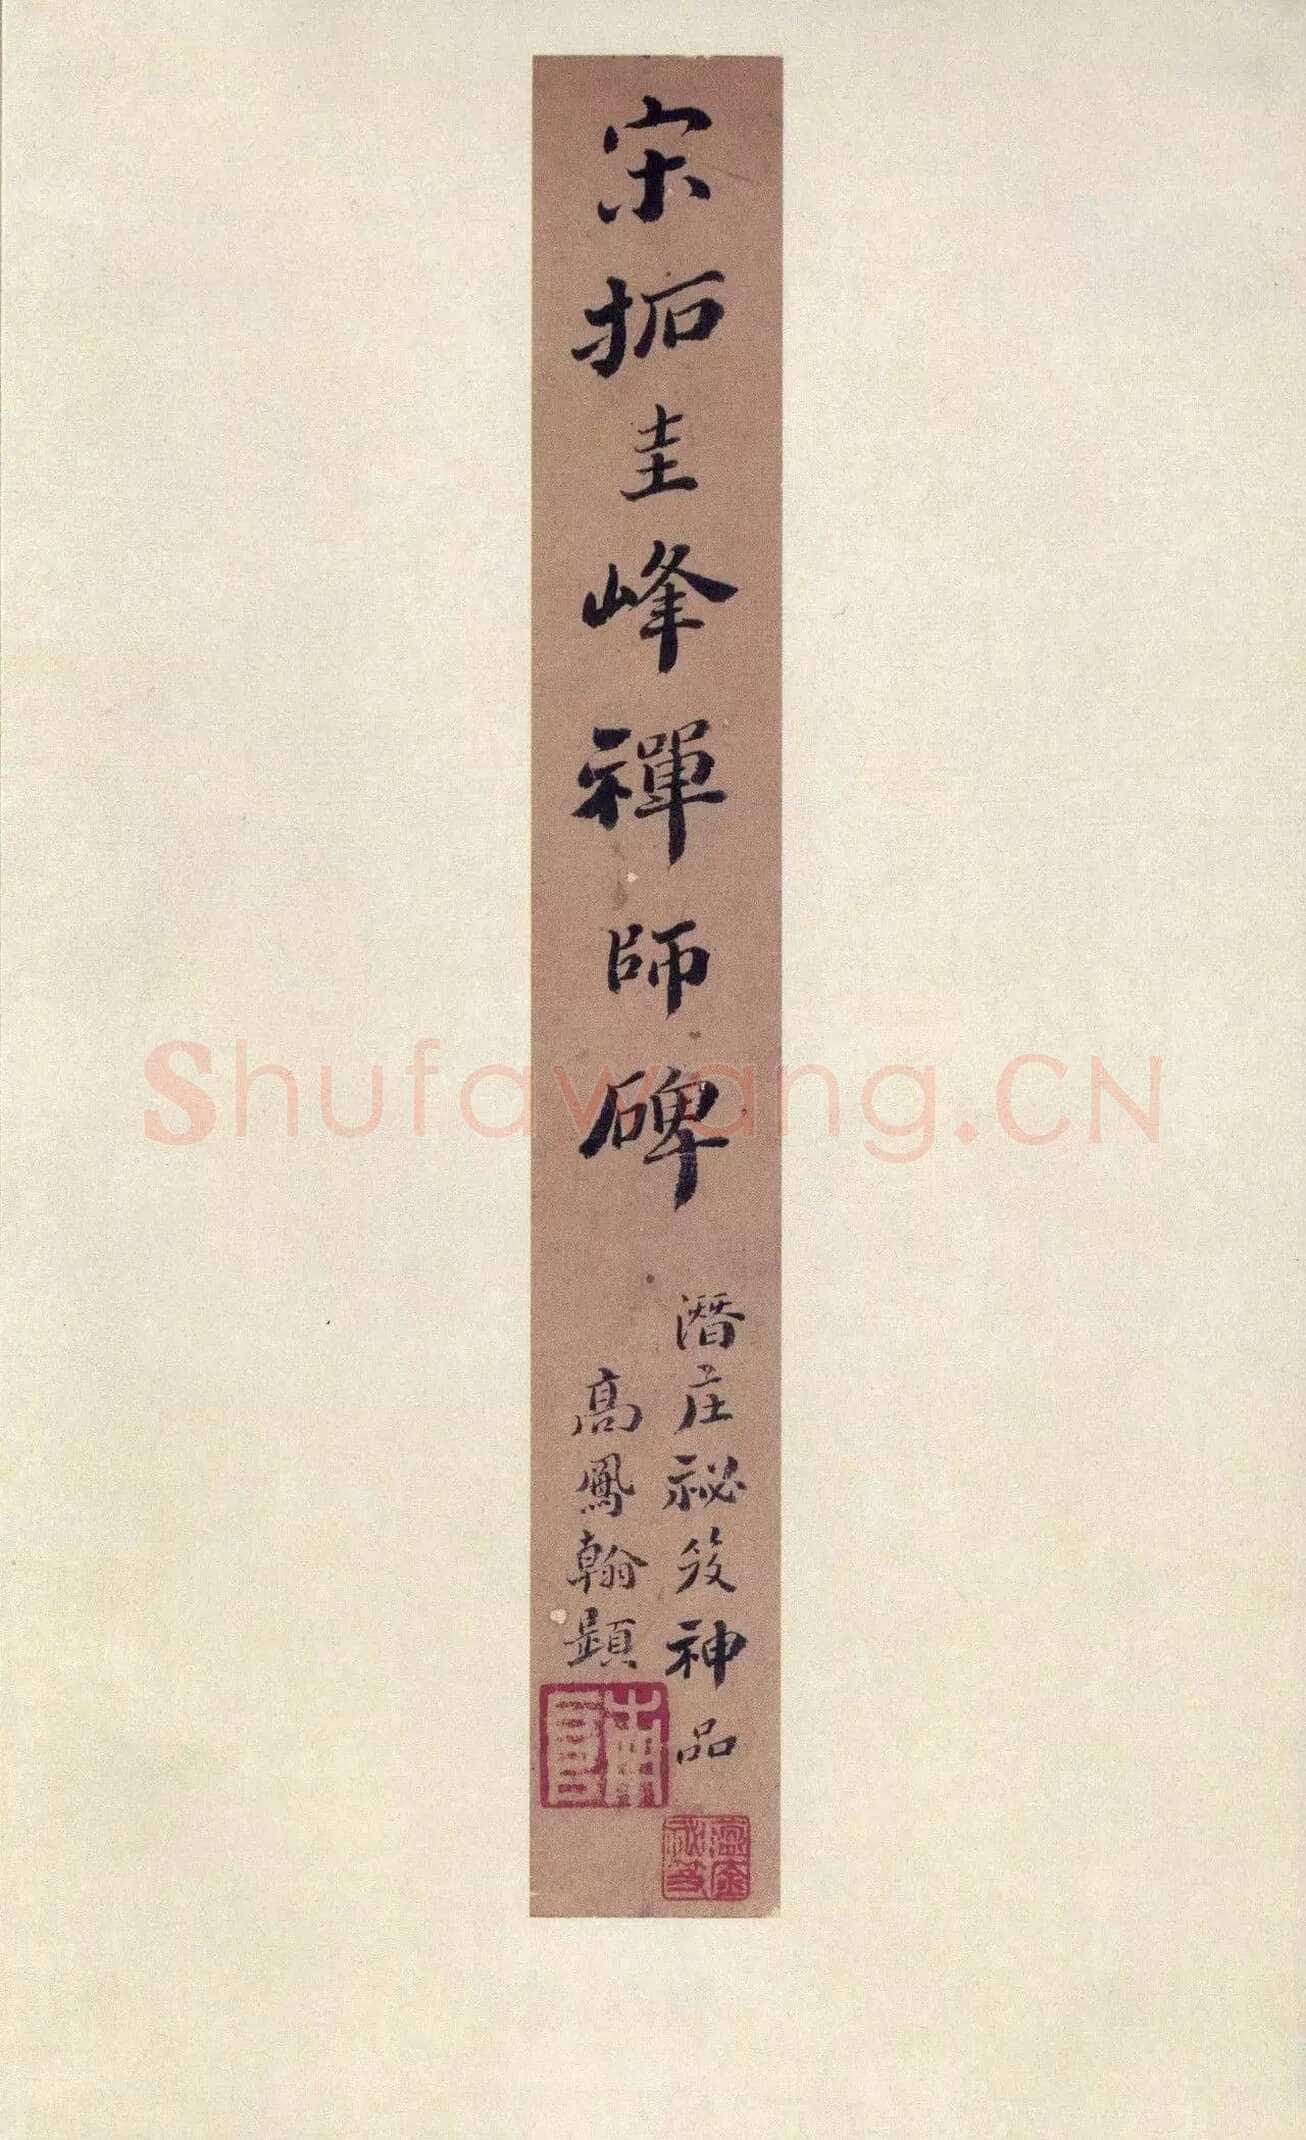 宋拓圭峰禪師碑
潛庄祕笈神品
高鳳翰題
Shufawang.CN